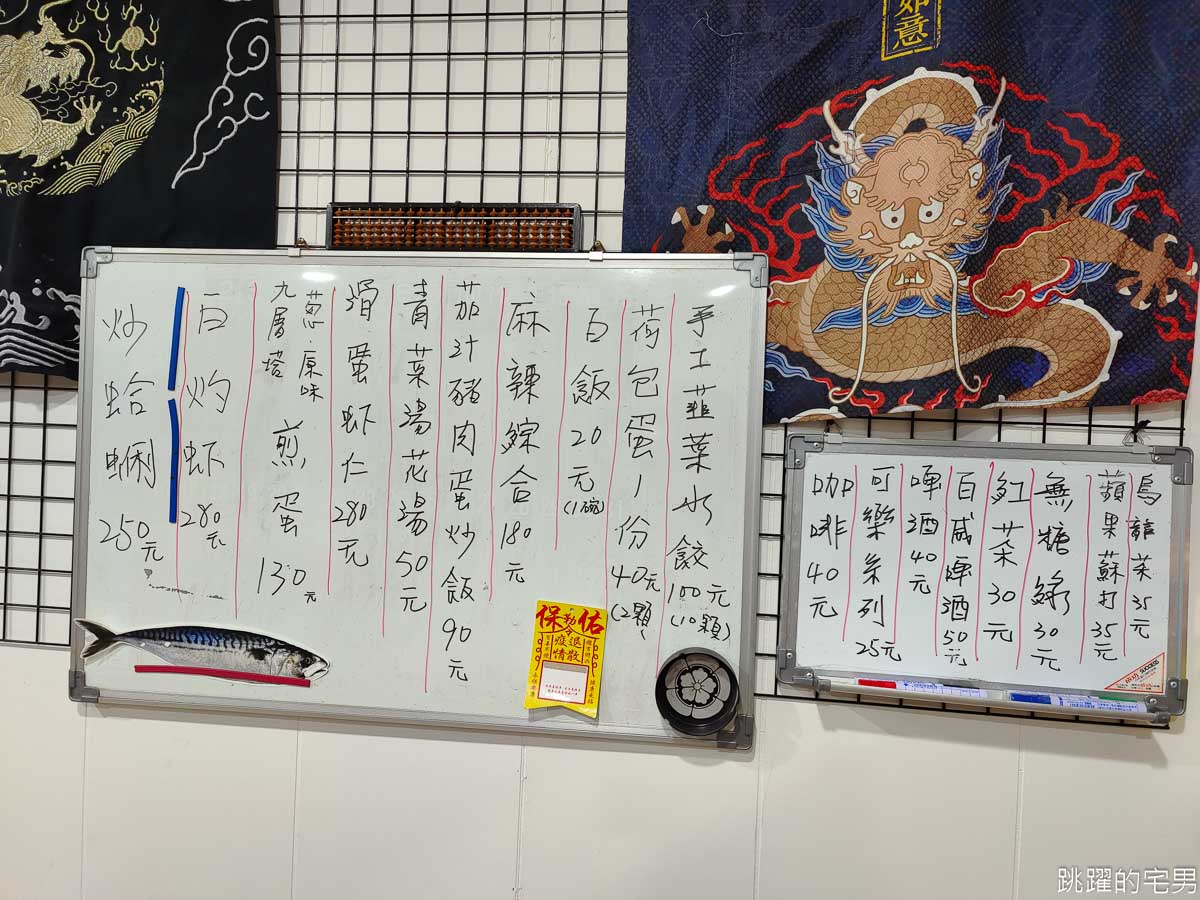 如意
手工韮菜水餃100元(10顆)
荷包蛋1份40元(2顆)
白飯20元(1碗)
麻辣綜合180元
茄汁豬肉蛋炒飯90元
青菜湯花湯50元
滑蛋虾仁280元
蔥.原味
九層塔
煎蛋130元
白灼虾280元
炒蛤蜊250元
保佑
勅令
疫退
情散
烏龍茶35元
蘋果蘇打35元
無糖綠30元
紅茶30元
百威啤酒50元
啤酒40元
可樂系列25元
咖啡40元
SUCCESS
跳躍的宅男